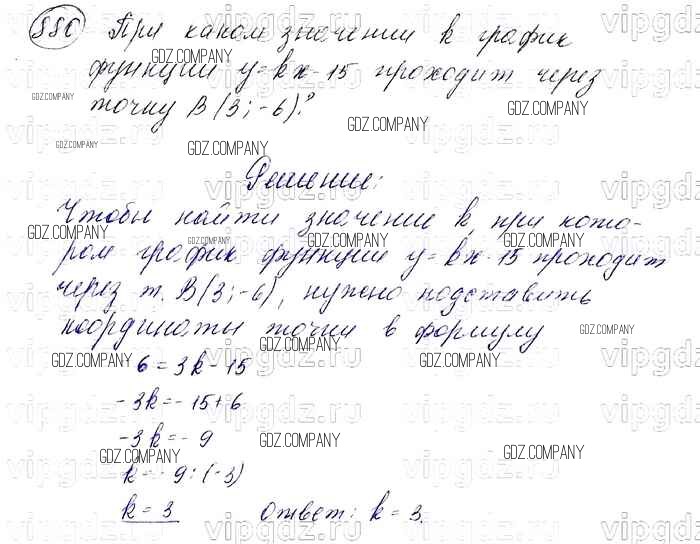 886 При каком значении k график
функции y=kx-15 проходит через
точку B(3;-6)?
Решение:
Чтобы найти значение k, при кото-
ром график функции y=kx-15 проходит
через т. B(3;-6), нужно подставить
координаты точки в формулу
6=3k-15
-3k=-15+6
-3k=-9
k=-9:(-3)
k=3 Ответ: k=3.
GDZ.COMPANY
vipgdz.ru